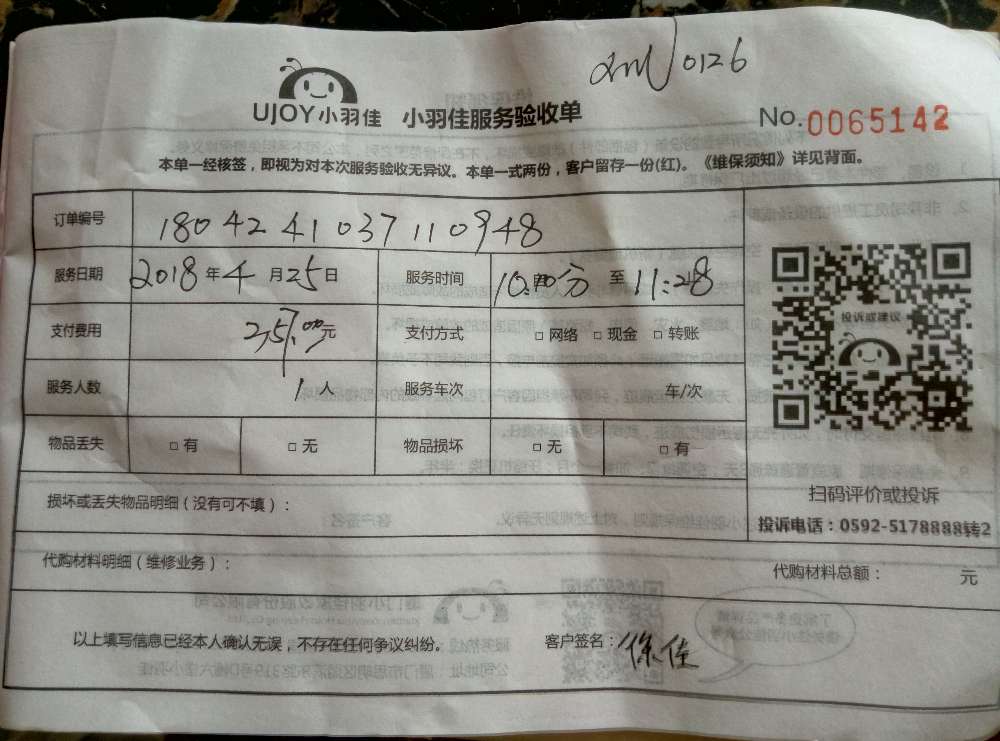 0126
UJOY小羽佳 小羽佳服务验收单
No.0065142
本单一经核签，即视为对本次服务验收无异议。本单一式两份，客户留存一份(红)。《维保须知》详见背面。
订单编号 180424103711 0948
服务日期 2018年4月25日 服务时间 至11:28
支付费用 元 支付方式 □网络 □现金 □转账
服务人数 1人 服务车次 车/次
物品丢失 □有 □无 物品损坏 □无 □有
投诉或建议
损坏或丢失物品明细（没有可不填）：
扫码评价或投诉
投诉电话：0592-5178888转2
代购材料明细（维修业务）： 代购材料总额： 元
以上填写信息已经本人确认无误，不存在任何争议纠纷。 客户签名：徐佳